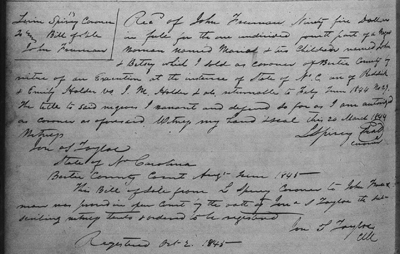 Coroner
Bill of Sale
To
John Freeman
Recd of John Freeman Ninety five Dollars
in full for the one undivided fourth part of a Negro
Woman named and two Children named
& Betsey which I sold as coroner of Bertie County by
virtue of an Execution at the instance of State of N.C.
& Emily Holder vs J. M. Holder & als, returnable to 1844 No 29.
The title to said negroes I warrant and defend so far as I am authorized
as coroner as aforesaid Witness my hand & seal this 20 March 1844
Witness
Jon S Tayloe
State of No Carolina
Bertie County Court Augt Term 1845
This Bill of Sale from L Coroner to John Free
man was proved in open Court by the oath of Jon S Tayloe the sub
scribing witness thereto & ordered to be registered
Jon S Tayloe
Clk
Registered Oct 2. 1845